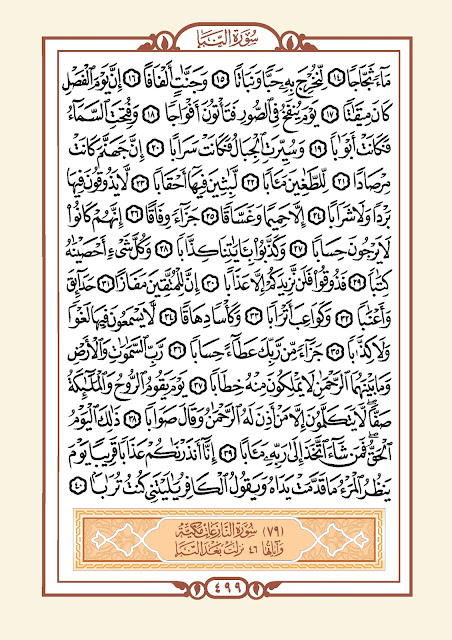 سُورَةُ النَّبَإِ
مَآءً ثَجَّاجًا ١٤ لِّنُخْرِجَ بِهِۦ حَبًّا وَنَبَاتًا ١٥ وَجَنَّٰتٍ أَلْفَافًا ١٦ إِنَّ يَوْمَ ٱلْفَصْلِ
كَانَ مِيقَٰتًا ١٧ يَوْمَ يُنفَخُ فِى ٱلصُّورِ فَتَأْتُونَ أَفْوَاجًا ١٨ وَفُتِحَتِ ٱلسَّمَآءُ
فَكَانَتْ أَبْوَٰبًا ١٩ وَسُيِّرَتِ ٱلْجِبَالُ فَكَانَتْ سَرَابًا ٢٠ إِنَّ جَهَنَّمَ كَانَتْ
مِرْصَادًا ٢١ لِّلطَّٰغِينَ مَـَٔابًا ٢٢ لَّٰبِثِينَ فِيهَآ أَحْقَابًا ٢٣ لَّا يَذُوقُونَ فِيهَا
بَرْدًا وَلَا شَرَابًا ٢٤ إِلَّا حَمِيمًا وَغَسَّاقًا ٢٥ جَزَآءً وِفَاقًا ٢٦ إِنَّهُمْ كَانُوا۟
لَا يَرْجُونَ حِسَابًا ٢٧ وَكَذَّبُوا۟ بِـَٔايَٰتِنَا كِذَّابًا ٢٨ وَكُلَّ شَىْءٍ أَحْصَيْنَٰهُ
كِتَٰبًا ٢٩ فَذُوقُوا۟ فَلَن نَّزِيدَكُمْ إِلَّا عَذَابًا ٣٠ إِنَّ لِلْمُتَّقِينَ مَفَازًا ٣١ حَدَآئِقَ
وَأَعْنَٰبًا ٣٢ وَكَوَاعِبَ أَتْرَابًا ٣٣ وَكَأْسًا دِهَاقًا ٣٤ لَّا يَسْمَعُونَ فِيهَا لَغْوًا
وَلَا كِذَّٰبًا ٣٥ جَزَآءً مِّن رَّبِّكَ عَطَآءً حِسَابًا ٣٦ رَّبِّ ٱلسَّمَٰوَٰتِ وَٱلْأَرْضِ
وَمَا بَيْنَهُمَا ٱلرَّحْمَٰنِ لَا يَمْلِكُونَ مِنْهُ خِطَابًا ٣٧ يَوْمَ يَقُومُ ٱلرُّوحُ وَٱلْمَلَٰٓئِكَةُ
صَفًّا لَّا يَتَكَلَّمُونَ إِلَّا مَنْ أَذِنَ لَهُ ٱلرَّحْمَٰنُ وَقَالَ صَوَابًا ٣٨ ذَٰلِكَ ٱلْيَوْمُ
ٱلْحَقُّ فَمَن شَآءَ ٱتَّخَذَ إِلَىٰ رَبِّهِۦ مَـَٔابًا ٣٩ إِنَّآ أَنذَرْنَٰكُمْ عَذَابًا قَرِيبًا يَوْمَ
يَنظُرُ ٱلْمَرْءُ مَا قَدَّمَتْ يَدَاهُ وَيَقُولُ ٱلْكَافِرُ يَٰلَيْتَنِى كُنتُ تُرَٰبًا ٤٠
(٧٩) سُورَةُ النَّازِعَاتِ مَكِّيَّة
وَآيَاتُهَا ٤٦ نَزَلَتْ بَعْدَ النَّبَإِ
٤٩٩